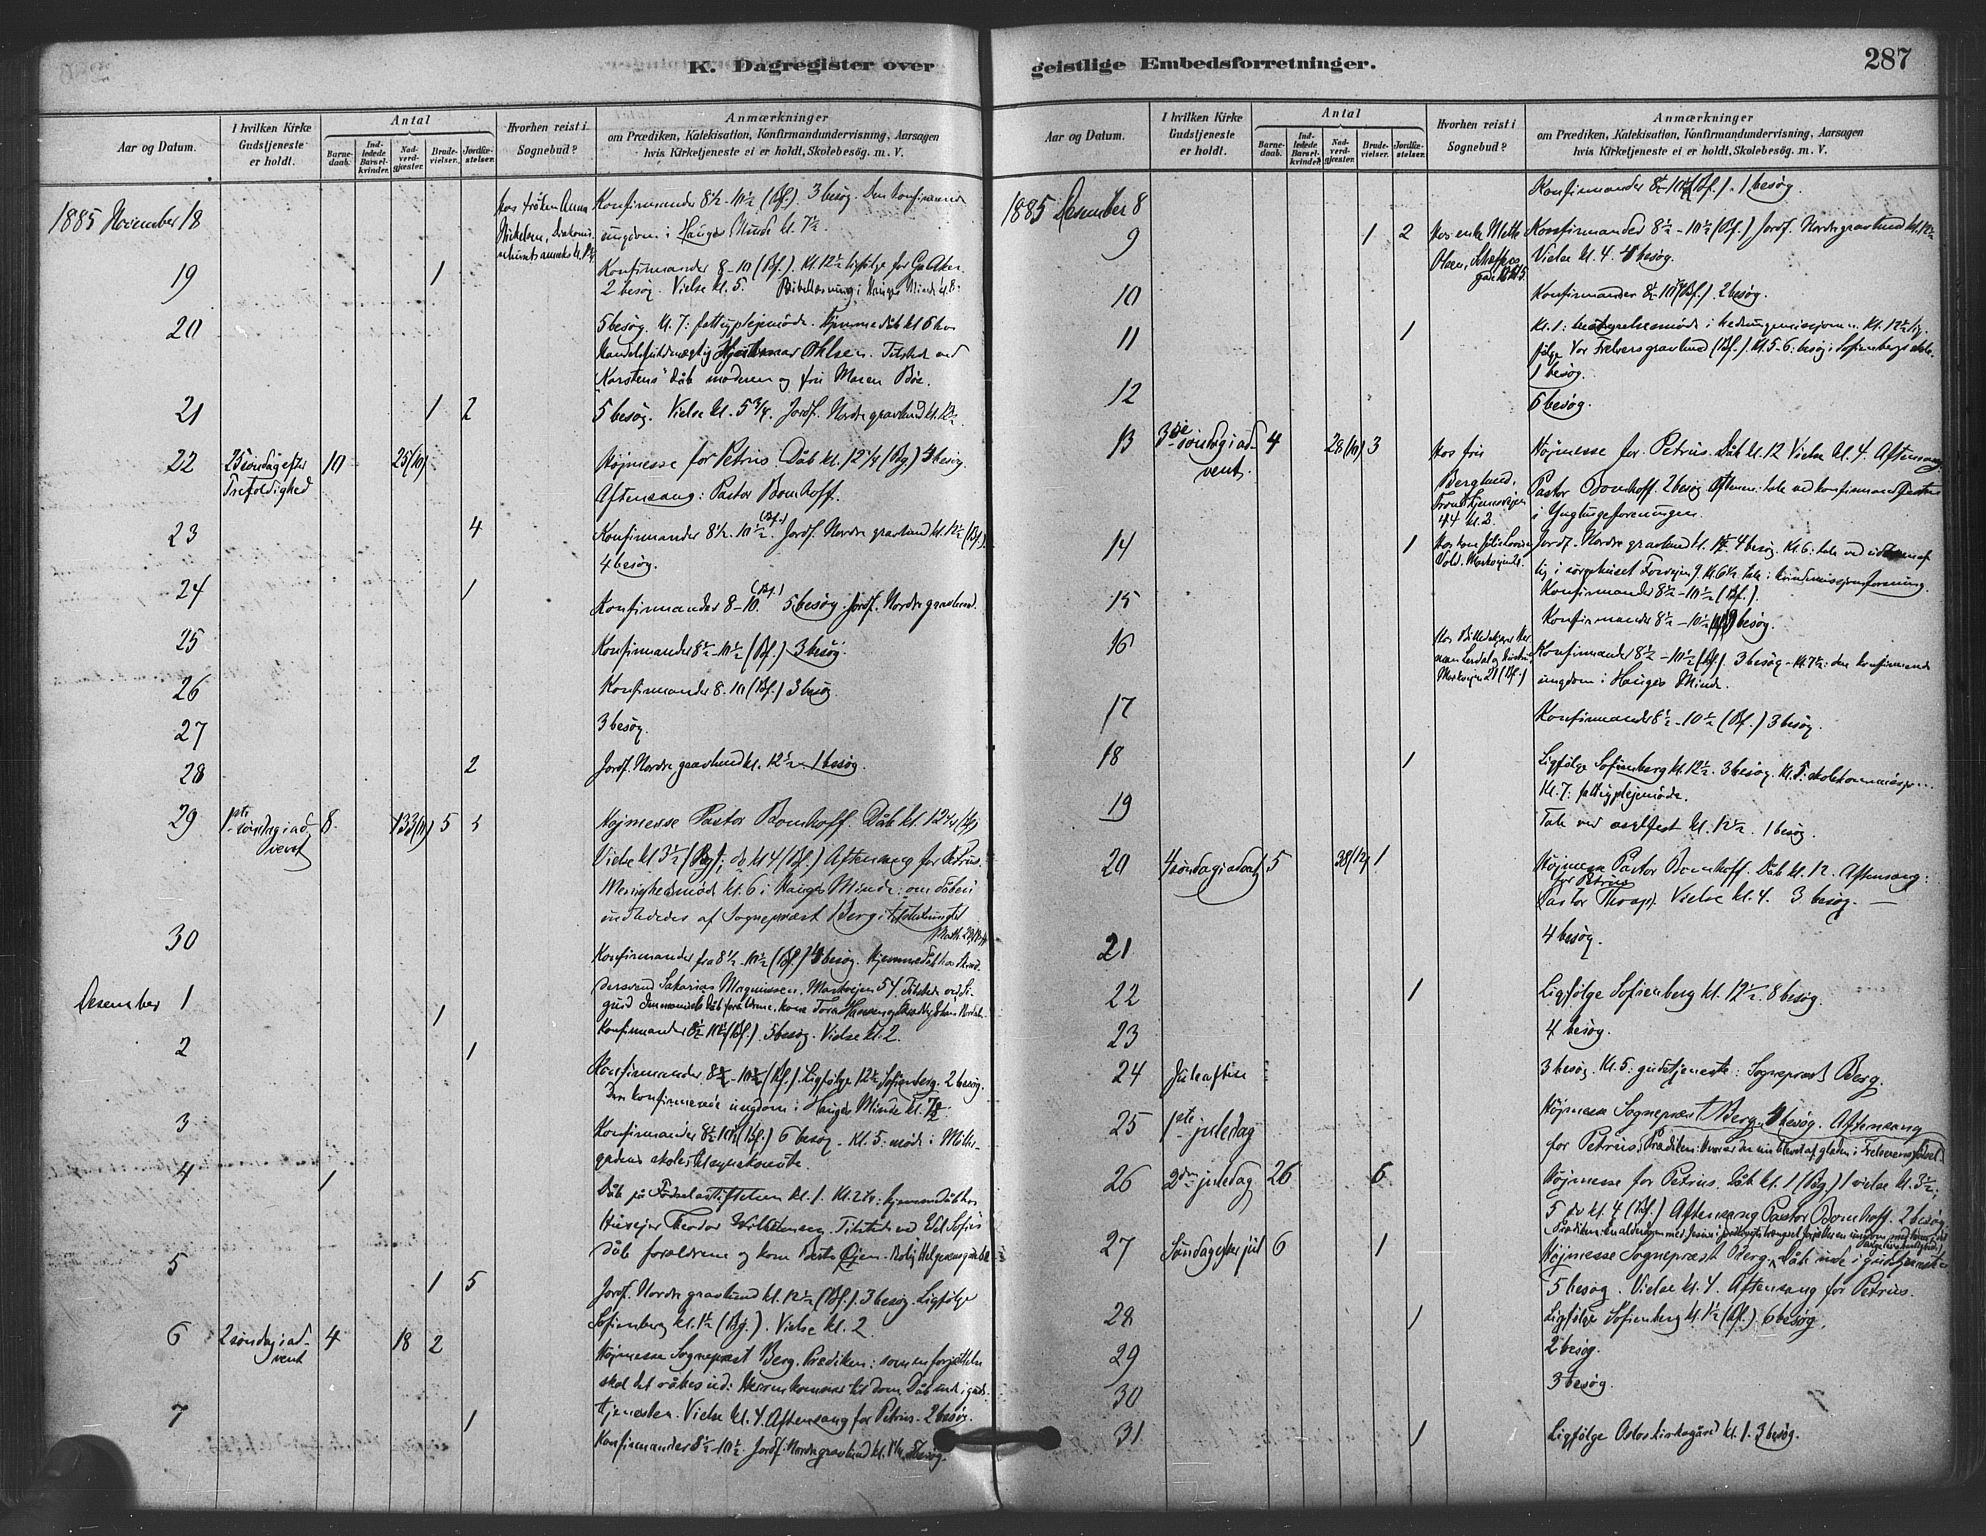 K. Dagregister over
Aar og Datum.
I hvilken Kirke Gudstjeneste er holdt.
Antal
Barnedaab.
Indledede Barselkvinder.
Nadverdgjæster.
Brudevielser.
Jordfæstelser.
Hvorhen reist i Sognebud?
Anmærkninger
om Prædiken, Katekisation, Konfirmandundervisning, Aarsagen
hvis Kirketjeneste ei er holdt, Skolebesøg. m. V.
1885 November 18
Hos frøken Anna
Konfirmander 8½-10½ (Bf.) 3 besøg. Den konfirmerede
ungdom i Hauges Minde kl. 7½
19 1
Konfirmander 8-10 (Bf.). Kl. 12½ ligfølge for
2 besøg. Vielse kl. 5. Bibellæsning i Hauges Minde kl. 8.
20
5 besøg. Kl. 7: fattigplejemøde. Hjemmedåb kl 6 hos
Hjalmar Ohlsen. Tilstede ved
Karstens dåb moderen og fru Maren Bøe.
21 1 2
5 besøg. Vielse kl. 5¾. Jordf. Nordre gravlund kl. 12½
22 25 søndag efter Trefoldighed 10 25(10)
Højmesse for Petrus. Dåb kl. 12¼ (Bg) 4 besøg.
Aftensang: Pastor Bomhoff.
23 4
Konfirmander 8½-10½ (Bf.) Jordf. Nordre gravlund kl. 12½ (Bf.)
4 besøg.
24 1
Konfirmander 8-10. (Bf.) 5 besøg. Jordf. Nordre gravlund.
25
Konfirmander 8½-10½ (Bf.) 3 besøg.
26
Konfirmander 8-10 (Bf.) 3 besøg
27
3 besøg.
28 2
Jordf. Nordre gravlund kl. 12½ 1 besøg.
29 1ste søndag i advent 8 133(11) 5
Højmesse Pastor Bomhoff. Dåb kl. 12¼ (Bf)
Vielse kl 3½ (Bg); do kl 4 (Bf.) Aftensang for Petrus.
Menighedsmøde kl. 6 i Hauges Minde: om dåben
indlededes af Sognepræst Berg
30
Konfirmander fra 8½-10½ (Bf.) besøg. Hjemmedåb hos
Desember 1 1
Sakarias Magnussen, Markvejen 54. Tilstede ved
Konfirmander 8½-10½ (Bf.). 5 besøg. Vielse kl. 2.
2 1
Konfirmander 8½-10½ (Bf.). Ligfølge 12½ Sofienberg. 2 besøg.
Den konfirmerede ungdom i Hauges Minde kl. 7½.
3
Konfirmander 8½-10½ (Bf.) 6 besøg. Kl. 5: møde i
4 1
Dåb på Fødselsstiftelsen kl. 1. Kl. 2½: hjemmedåb hos
Theodor Wilhelmsen. Tilstede ved Edel Sofies
dåb forældrene og
5 1 5
Jordf. Nordre gravlund kl. 12½ (Bf.). 3 besøg. Ligfølge
Sofienberg kl. 1½ (Bg.). Vielse kl. 2.
6 2 søndag i advent 4 18 2
Højmesse Sognepræst Berg. Prædiken: som en forjættelse
skal det råbes ud: Herren kommer til dom. Dåb inde i gudstjenesten.
Vielse kl. 4. Aftensang for Petrus. 2 besøg.
7 1
Konfirmander 8½-10½. Jordf. Nordre gravlund kl. besøg.
287
geistlige Embedsforretninger.
Aar og Datum.
I hvilken Kirke Gudstjeneste er holdt.
Antal
Barnedaab.
Indledede Barselkvinder.
Nadverdgjæster.
Brudevielser.
Jordfæstelser.
Hvorhen reist i Sognebud?
Anmærkninger
om Prædiken, Katekisation, Konfirmandundervisning, Aarsagen
hvis Kirketjeneste ei er holdt, Skolebesøg. m. V.
1885 Desember 8
Konfirmander 8½-10½ (Bf.). 1 besøg.
9 1 2
Hos enke Mette Olsen,
Konfirmander 8½-10½ (Bf.) Jordf. Nordre gravlund kl. 12½
Vielse kl. 4. 4 besøg.
10
Konfirmander 8½-10½ (Bf.). 2 besøg.
11 1
Kl. 1: bestyrelsesmøde i hedningemissjonen. Kl. 12½ lig-
følge Vor Frelsers gravlund (Bf.). Kl. 5-6: besøg i Sofienbergs skole.
1 besøg.
12
6 besøg.
13 3die søndag i advent. 4 28(10) 3
Hos fru Berglund, Trondhjemsvejen 44 kl. 2.
Højmesse for Petrus. Dåb kl. 12 Vielse kl. 4. Aftensang
Pastor Bomhoff. 2 besøg. Aftenen: tale ved
i Ynglingeforeningen.
14 1
Jordf. Nordre gravlund kl. 1½. 4 besøg. Kl. 6: tale ved
i sørgehuset kl. 6½ tale i kvindemissjonsforening.
15
Konfirmander 8½-10½ (Bf.).
Konfirmander 8½-10½ besøg.
16
Konfirmander 8½-10½ (Bf.). 3 besøg. Kl. 7½: den konfirmerede
ungdom i Hauges Minde.
17
Konfirmander 8½-10½ (Bf.) 3 besøg.
18 1
Ligfølge Sofienberg kl. 12½. 3 besøg. Kl. 5: skolekommission
Kl. 7: fattigplejemøde.
19
Tale ved asylfest kl. 12½. 1 besøg.
20 4 søndag i advent 5 38(12) 1
Højmesse Pastor Bomhoff. Dåb kl. 12. Aftensang:
for Petrus
Pastor Thorp. Vielse kl. 4. 3 besøg.
21
4 besøg.
22 1
Ligfølge Sofienberg kl. 12½. 8 besøg.
23
4 besøg.
24 Juleaften
3 besøg. Kl. 5: gudstjeneste: Sognepræst Berg.
25 1ste juledag
Højmesse Sognepræst Berg. 4 besøg. Aftensang
for Petrus. Prædiken:
26 2den juledag 26 6
Højmesse for Petrus. Dåb kl. 1 (Bg) 1 vielse kl. 3½;
5 do kl. 4 (Bf.) Aftensang Pastor Bomhoff. 2 besøg
27 Søndag efter jul 6 1
Højmesse Sognepræst Berg. Dåb inde i gudstjenesten.
5 besøg. Vielse kl. 4. Aftensang for Petrus.
28 1
Ligfølge Sofienberg kl. 1½ (Bf.) 6 besøg.
29
2 besøg.
30
3 besøg.
31 1
Ligfølge Oslo kirkegård kl. 1. 3 besøg.